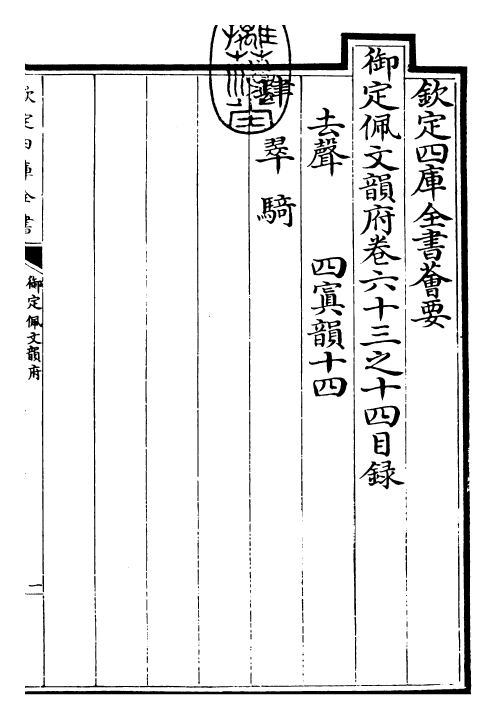 欽定四庫全書薈要
御定佩文韻府卷六十三之十四目錄
去聲　四寘韻十四
肆　翠　騎
欽定四庫全書
御定佩文韻府
一